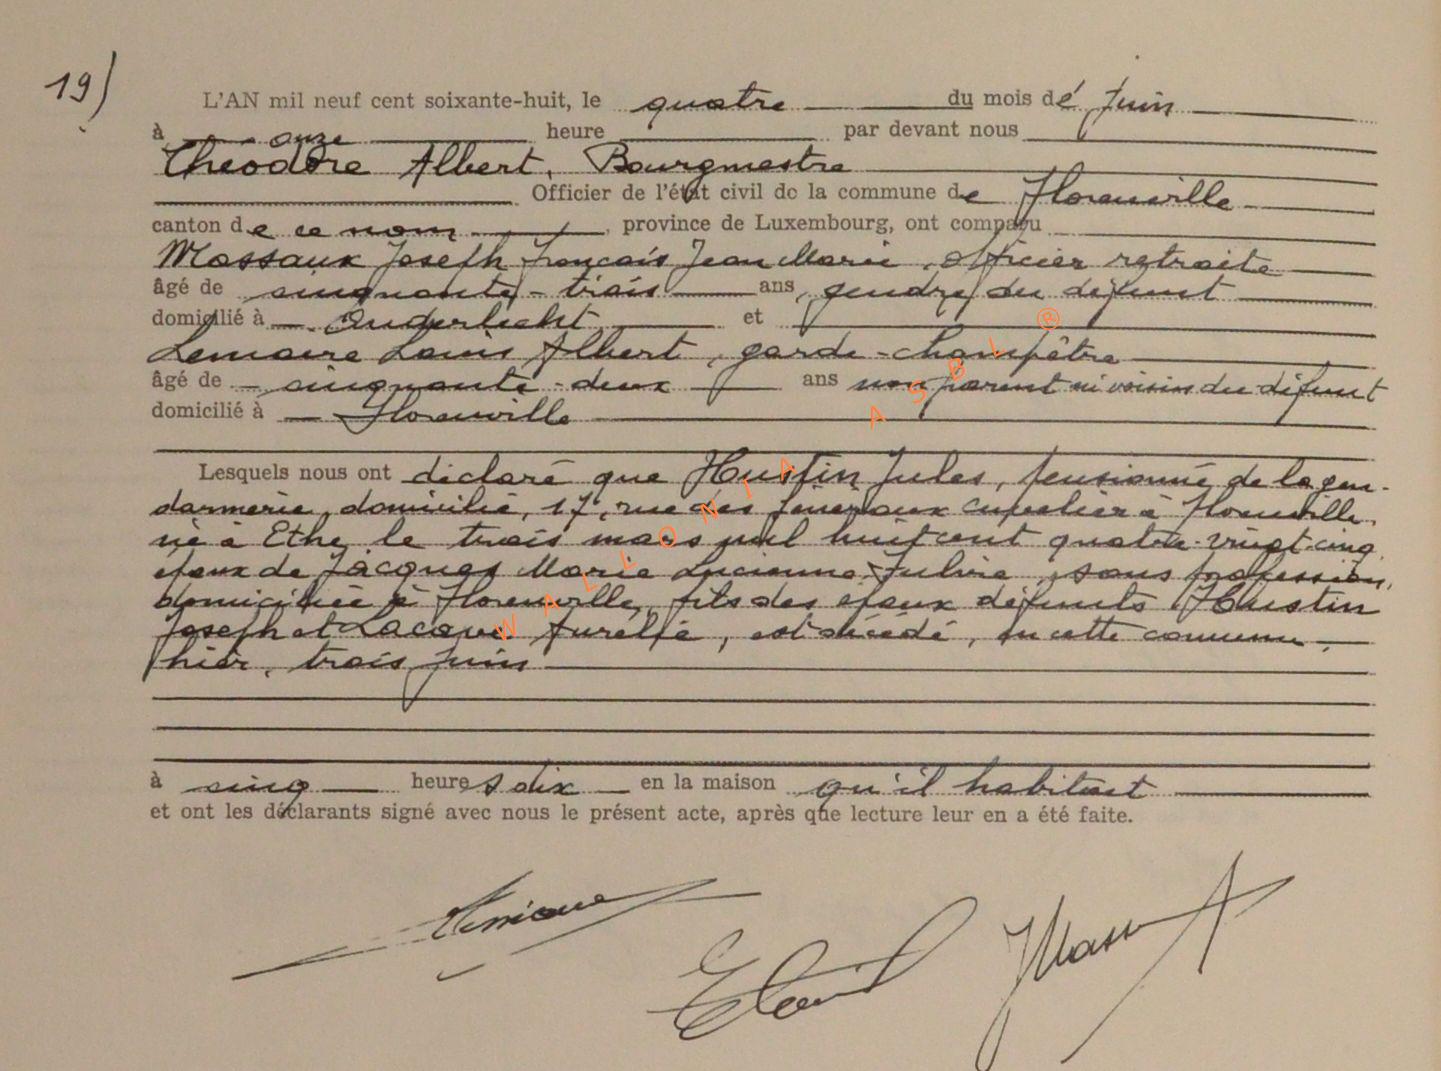 19)
L'AN mil neuf cent soixante-huit, le quatre du mois de Juin
à onze heure par devant nous
Théodore Albert, Bourgmestre
Officier de l'état civil de la commune de Florenville
canton de ce nom, province de Luxembourg, ont comparu
Massaux Joseph François Jean Marie, officier retraité
âgé de cinquante-trois ans, gendre du défunt
domicilié à Anderlecht et
Lemaire Louis Albert, garde-champêtre
âgé de cinquante-deux ans non parent ni voisin du défunt
domicilié à Florenville
Lesquels nous ont déclaré que Hustin Jules, pensionné de la gen-
darmerie, domicilié, 17, rue des Généraux Cuvelier à Florenville,
né à Ethe, le trois mars mil huit cent quatre-vingt-cinq,
époux de Jacques Marie Lucienne Fulvie, sans profession,
domiciliée à Florenville, fils des époux défunts Hustin
Joseph et Lacave Aurélie, est décédé, en cette commune,
hier, trois juin
à cinq heures dix en la maison qu'il habitait
et ont les déclarants signé avec nous le présent acte, après que lecture leur en a été faite.
WALLONIA ASBL ®